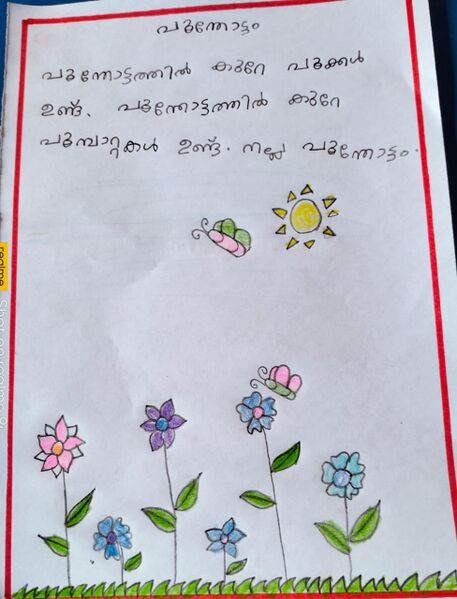 പൂന്തോട്ടം
പൂന്തോട്ടത്തിൽ കുറേ പൂക്കൾ
ഉണ്ട്. പൂന്തോട്ടത്തിൽ കുറേ
പൂമ്പാറ്റകൾ ഉണ്ട്. നല്ല പൂന്തോട്ടം.
realme
Shot on realme